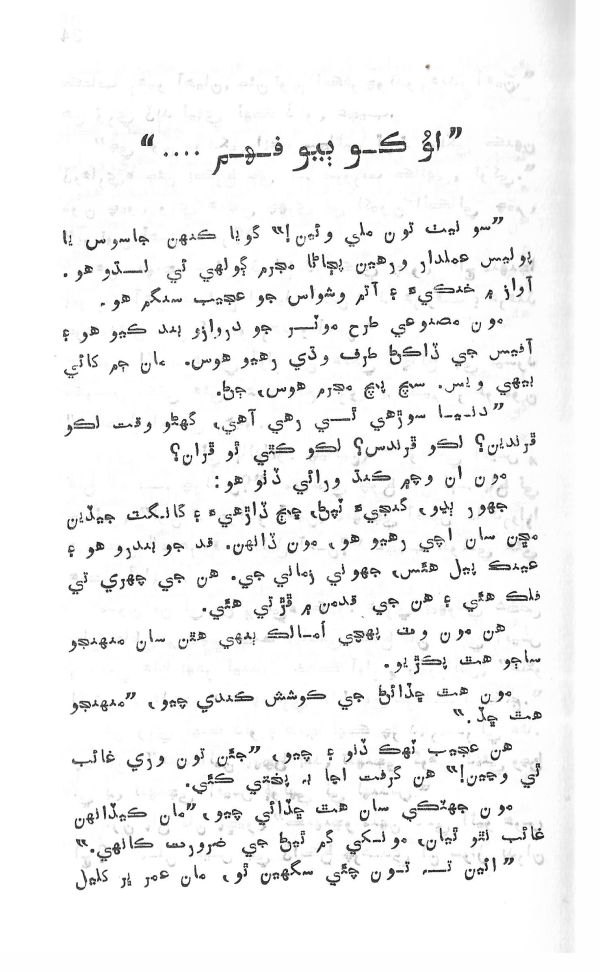 ”اؤ ڪو ٻيو فهم ....“
”سو نيٺ تون ملي وئين!“ گويا ڪنهن جاسوس يا
پوليس عملدار ورهين پڄاڻا مجرم ڳولهي ئي لڌو هو.
آواز ۾ خنڪيءَ ۽ آتم وشواس جو عجيب سنگم هو.
مون مصنوعي طرح موٽر جو دروازو بند ڪيو هو ۽
آفيس جي ڏاڪڻ طرف وڌي رهيو هوس. مان ڄم کائي
بيهي ويس. سچ پچ مجرم هوس، ڄڻ.
”دنيا سوڙهي ٿي رهي آهي، گهڻو وقت لڪو
ڦرندين؟ لڪو ڦرندس؟ لڪو ڪٿي ٿو ڦران؟
مون ان وچ ۾ ڪنڌ ورائي ڏٺو هو:
جهور پيو، گنجيءَ ٽپڻ، ڇڇ ڏاڙهيءَ ۽ کانگٽ جيڏين
مڇن سان اچي رهيو هو، مون ڏانهن. قد جو بندرو هو ۽
عينڪ پيل هئس، جهوني زماني جي. هن جي چهري تي
فلڪ هئي ۽ هن جي قدمن ۾ ڦڙتي هئي.
هن مون وٽ پهچي اُمالڪ ٻنهي هٿن سان منهنجو
ساڄو هٿ پڪڙيو.
مون هٿ ڇڏائڻ جي ڪوشش ڪندي چيو، ”منهنجو
هٿ ڇڏ.“
هن عجيب ٽهڪ ڏنو ۽ چيو، ”جيئن تون وري غائب
ٿي وڃين!“ هن گرفت اڃا به پختي ڪئي.
مون جهٽڪي سان هٿ ڇڏائي چيو، ”مان ڪيڏانهن
غائب نٿو ٿيان، مونکي گم ٿيڻ جي ضرورت ڪانهي.“
”ائين ته تون چئي سگهين ٿو، مان عمر ڀر کليل